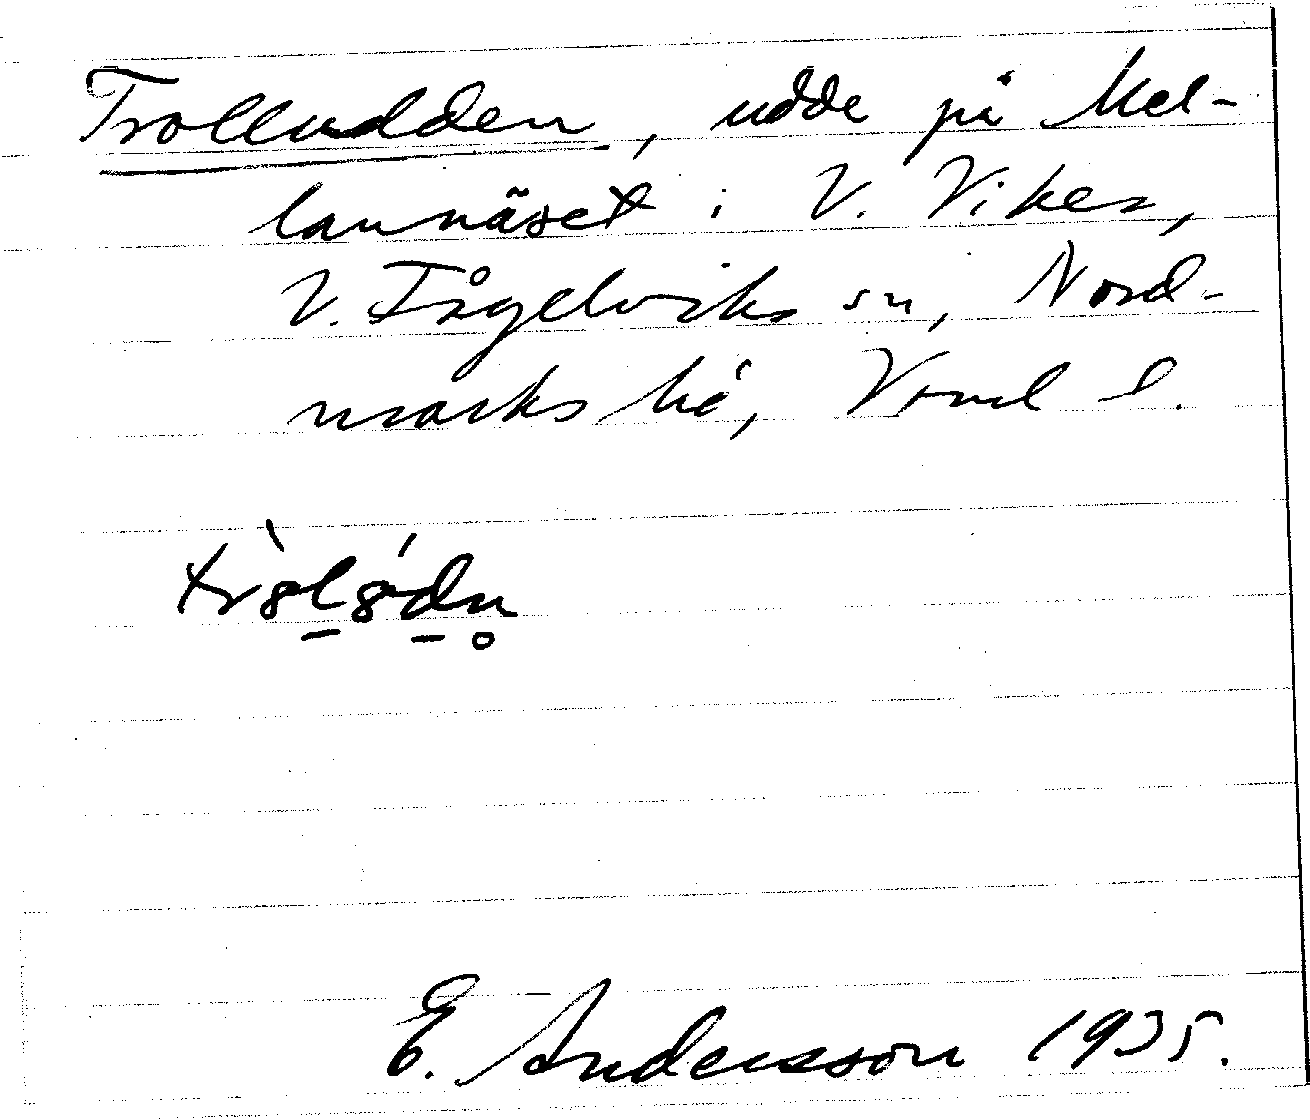 Trolludden, udde på Mel-
lannäset i V. Viker,
V. Fågelviks sn, Nord-
marks hd, Vrml l.
tr8̀l̠8́d̠n̥
E. Andersson 1935.